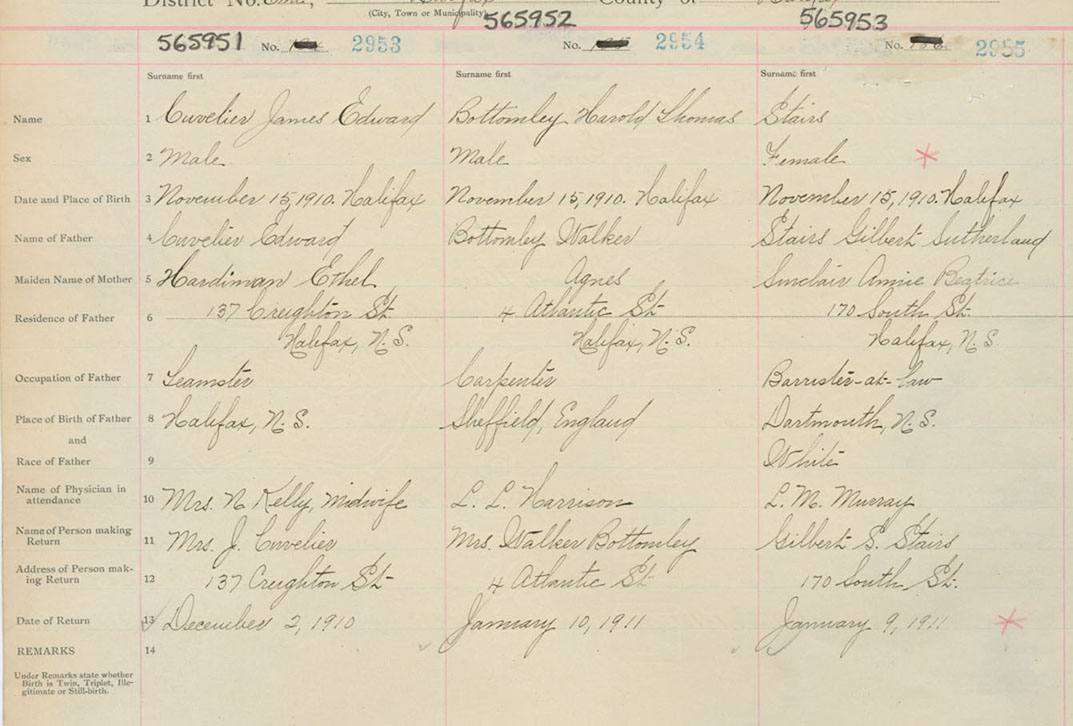 District No. County of
(City, Town or Municipality)
565951 No. 2953 565952 No. 2954 565953 No. 2955
Surname first Surname first Surname first
Name 1 Cuvelier James Edward Bottomley Harold Thomas Stairs
Sex 2 Male Male Female *
Date and Place of Birth 3 November 15, 1910. Halifax November 15, 1910. Halifax November 15, 1910. Halifax
Name of Father 4 Cuvelier Edward Bottomley Walker Stairs Gilbert Sutherland
Maiden Name of Mother 5 Hardiman Ethel Agnes Sinclair Annie Beatrice
Residence of Father 6 137 Creighton St. 4 Atlantic St. 170 South St.
Halifax, N.S. Halifax, N.S. Halifax, N.S.
Occupation of Father 7 Teamster Carpenter Barrister-at-law
Place of Birth of Father 8 Halifax, N.S. Sheffield, England Dartmouth, N.S.
and
Race of Father 9 White
Name of Physician in
attendance 10 Mrs. N. Kelly, Midwife L. L. Harrison L. M. Murray
Name of Person making
Return 11 Mrs. J. Cuvelier Mrs. Walker Bottomley Gilbert S. Stairs
Address of Person mak-
ing Return 12 137 Creighton St. 4 Atlantic St. 170 South St.
Date of Return 13 December 2, 1910 January 10, 1911 January 9, 1911 *
REMARKS 14
Under Remarks state whether
Birth is Twin, Triplet, Ille-
gitimate or Still-birth.